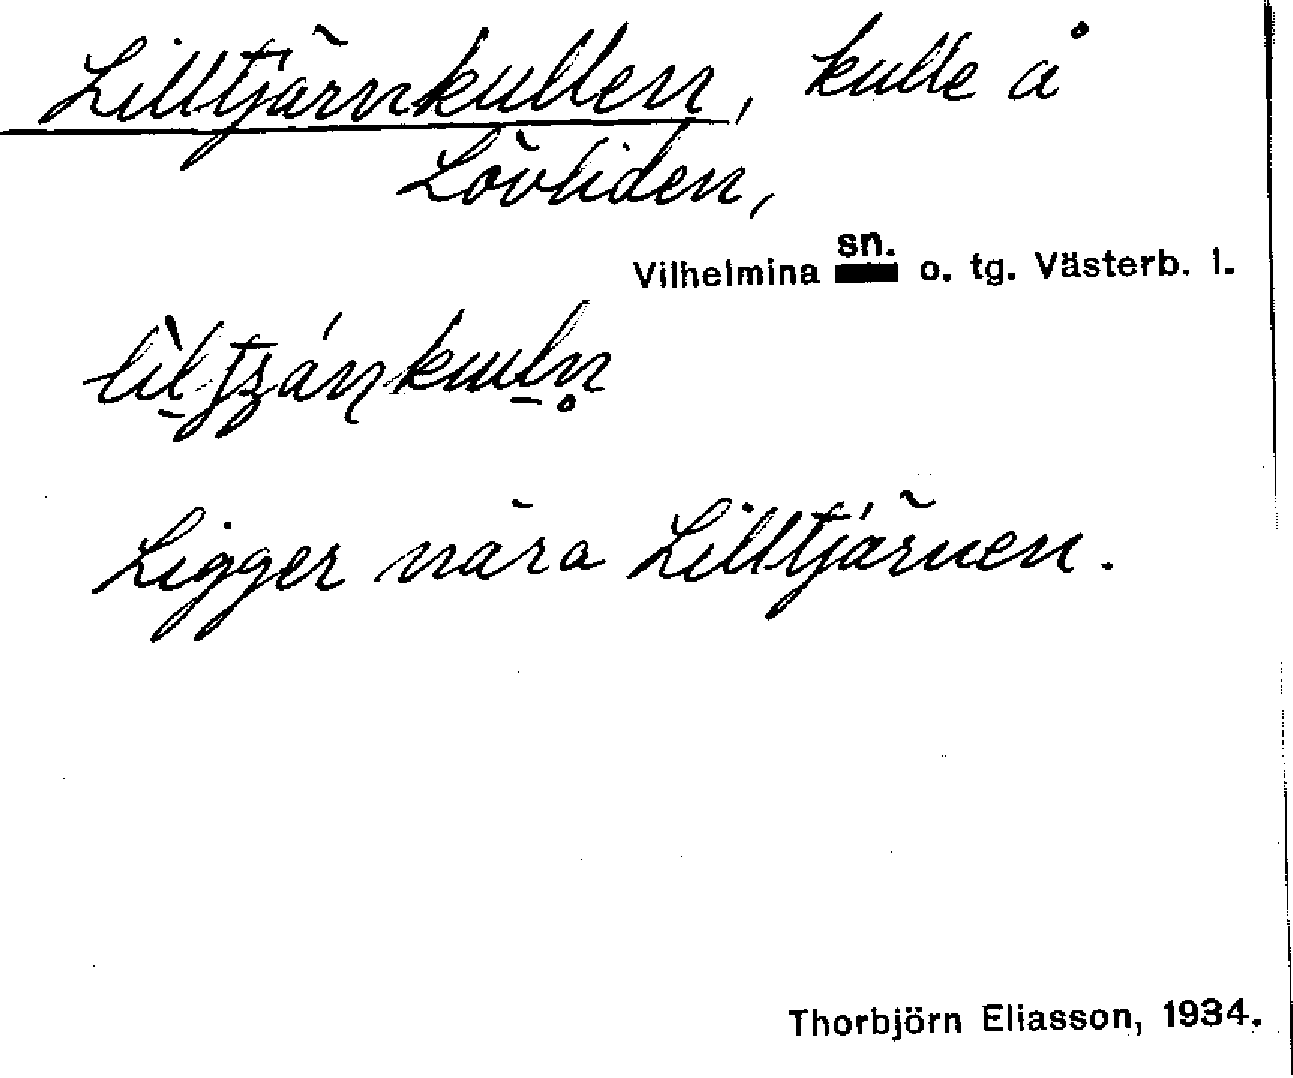 Lilltjärnkullen, kulle å
Lövliden,
Vilhelmina sn. o. tg. Västerb. l.
Ligger nära Lilltjärnen.
Thorbjörn Eliasson, 1934.